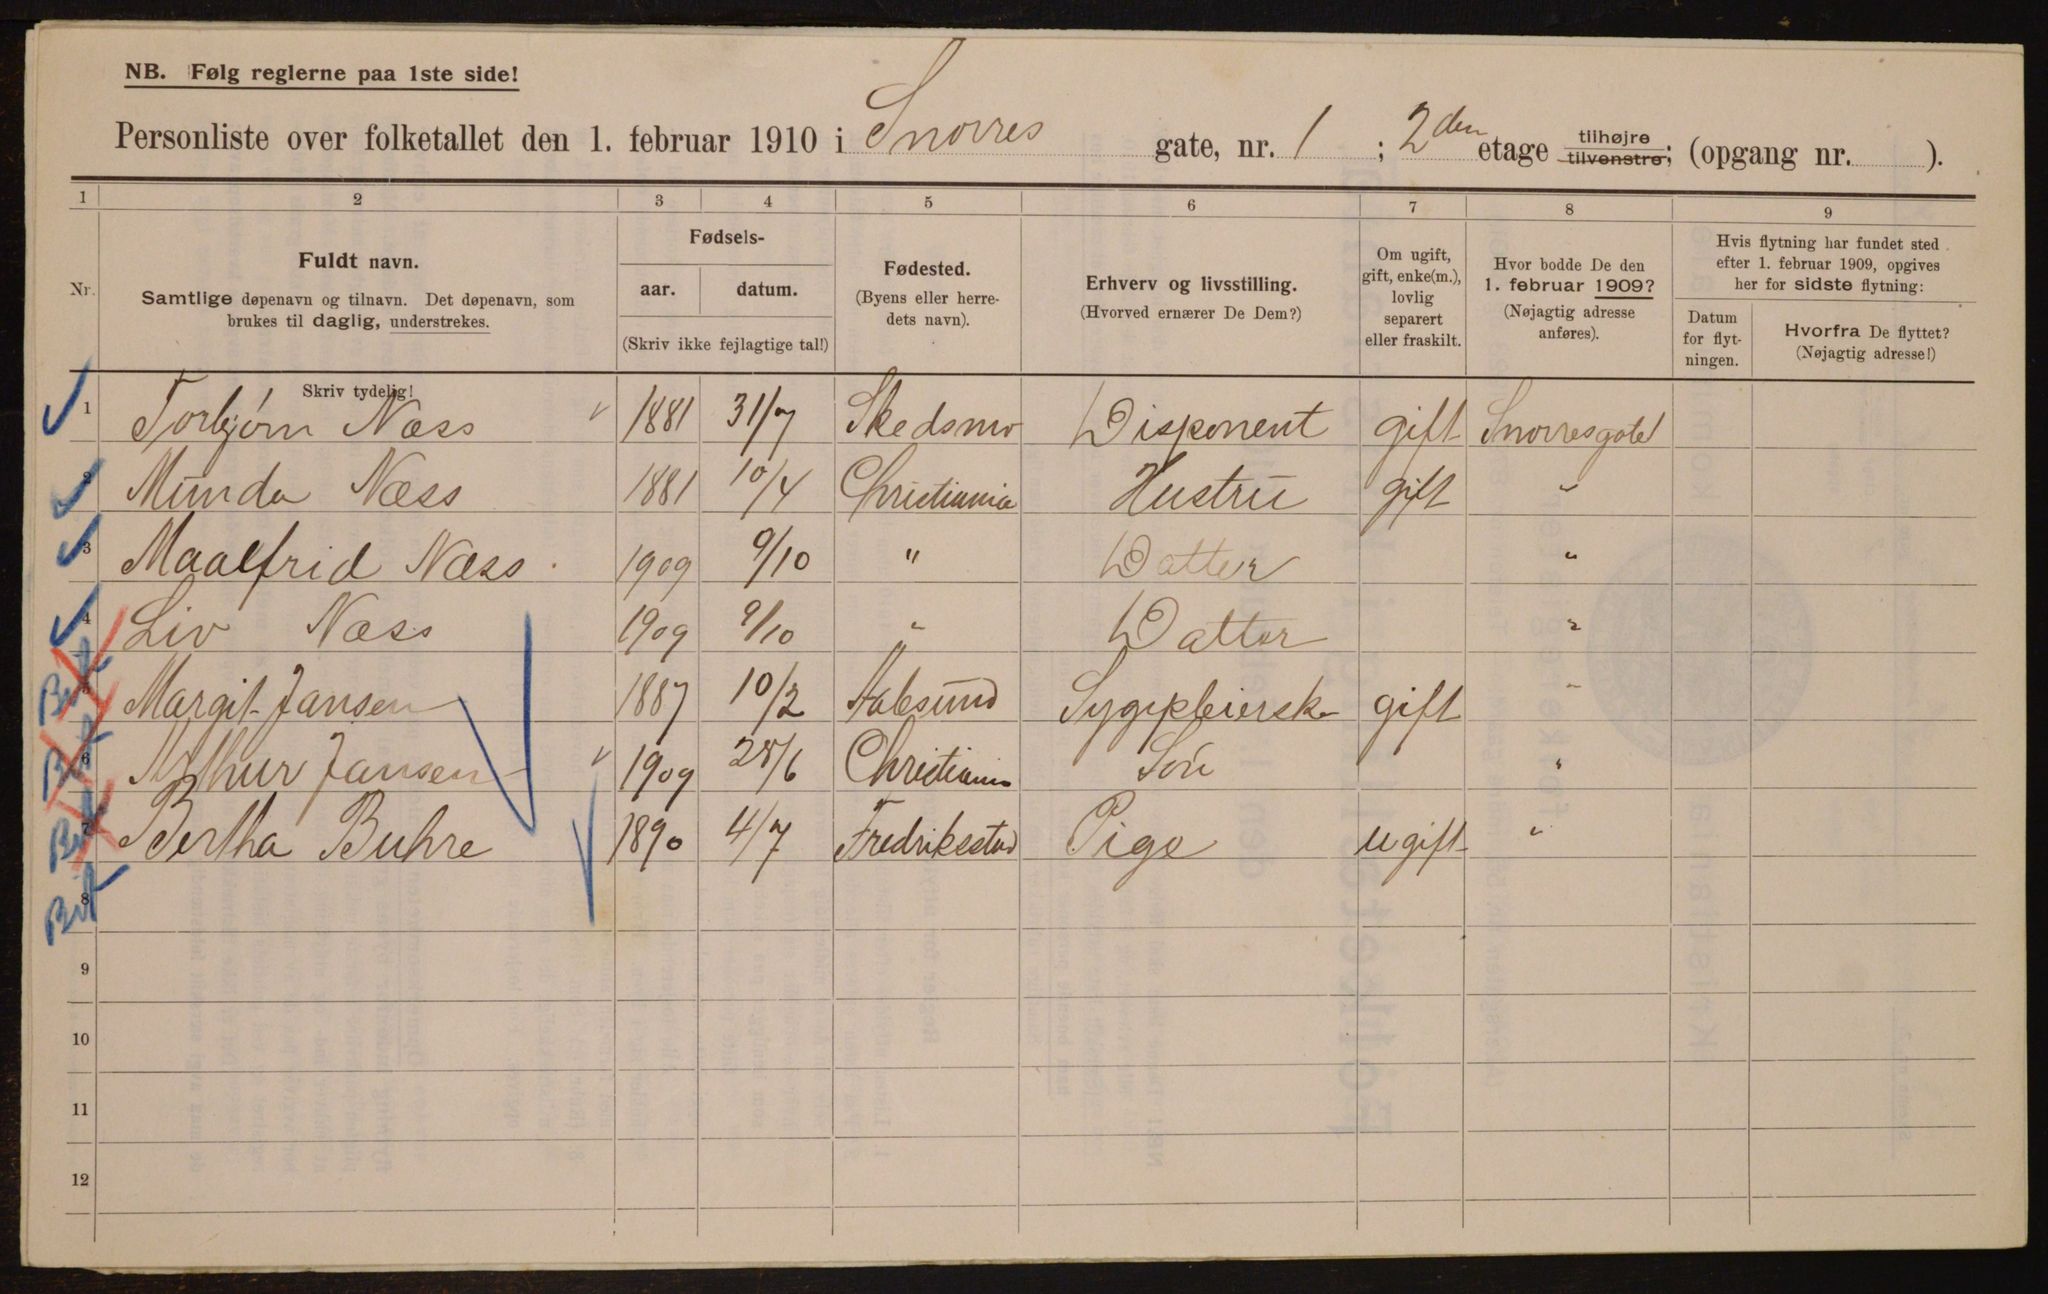 NB. Følg reglerne paa 1ste side!
Personliste over folketallet den 1. februar 1910 i Snorres gate, nr. 1 ; 2den etage tilhøjre tilvenstre; (opgang nr. ).
1 2 3 4 5 6 7 8 9
Nr.
Fuldt navn.
Samtlige døpenavn og tilnavn. Det døpenavn, som
brukes til daglig, understrekes.
Skriv tydelig!
Fødsels-
aar. datum.
(Skriv ikke fejlagtige tal!)
Fødested.
(Byens eller herre-
dets navn).
Erhverv og livsstilling.
(Hvorved ernærer De Dem?)
Om ugift,
gift, enke(m.),
lovlig
separert
eller fraskilt.
Hvor bodde De den
1. februar 1909?
(Nøjagtig adresse
anføres).
Hvis flytning har fundet sted
efter 1. februar 1909, opgives
her for sidste flytning:
Datum
for flyt-
ningen.
Hvorfra De flyttet?
(Nøjagtig adresse!)
1 Torbjørn Næss 1881 31/7 Skedsmo Disponent gift Snorresgate 1
2 Munda Næss 1881 10/4 Christiania Hustru gift "
3 Maalfrid Næss 1909 9/10 " Datter "
4 Liv Næss 1909 9/10 " Datter "
5 Margit Jansen 1887 10/2 Aalesund Sygepleierske gift "
6 Arthur Jansen 1909 28/6 Christiania Søn "
7 Bertha Buhre 1890 4/7 Fredrikstad Pige ugift "
8
9
10
11
12